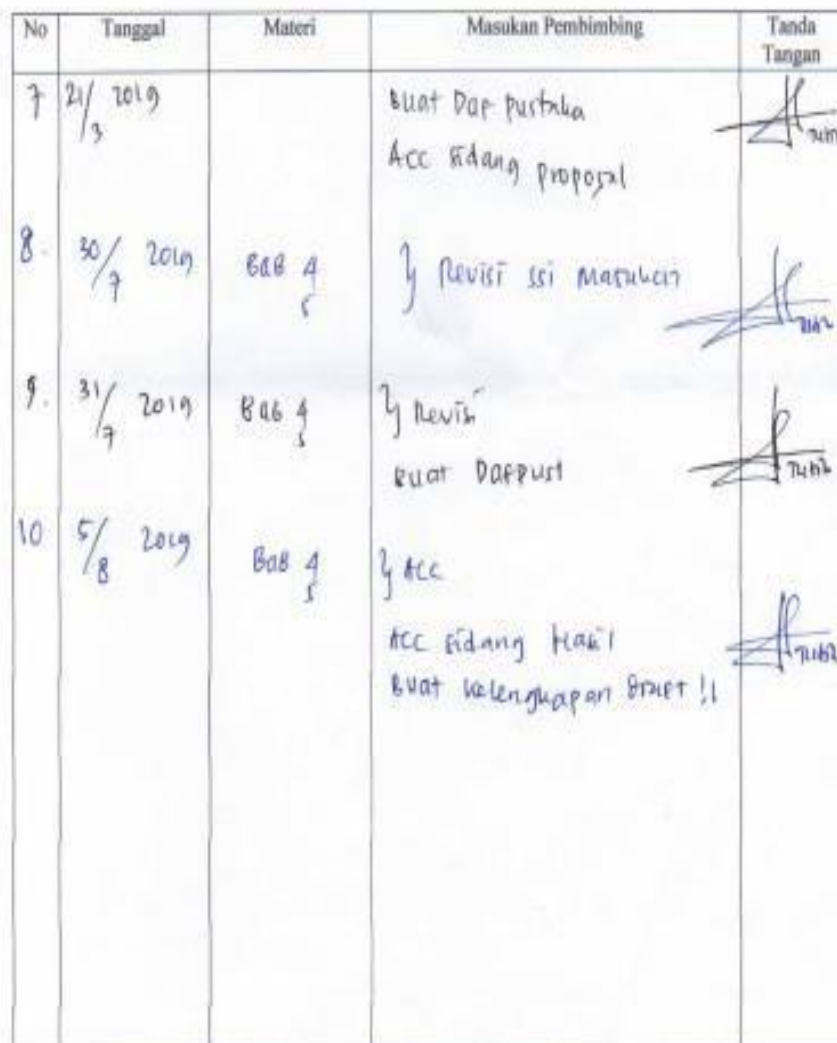 No Tanggal Materi Masukan Pembimbing Tanda Tangan
7 21/3 2019 Buat Daf pustaka
Acc sidang proposal
8. 30/7 2019 BAB 4 } Revisi ssi Masukan
5
9. 31/7 2019 BAB 4 } Revisi
5
Buat Dafpust
10 5/8 2019 BAB 4 } ACC
5
ACC sidang Hasil
Buat kelengkapan Draft !!